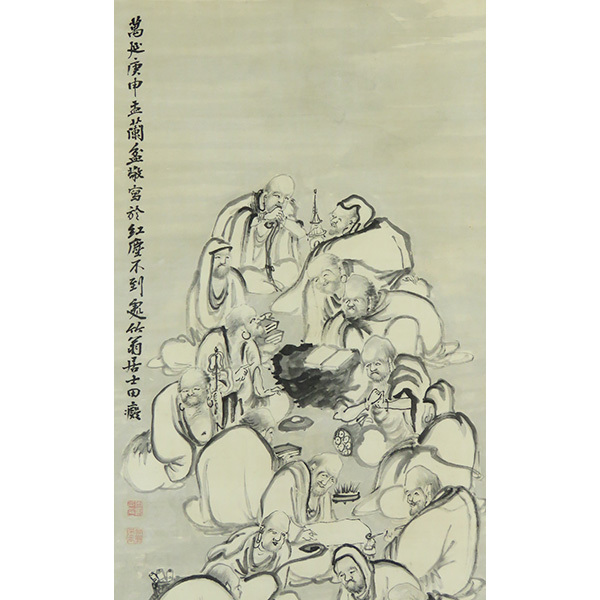 萬延庚申盂蘭盆敬寫於紅塵不到處竹翁居士田癡